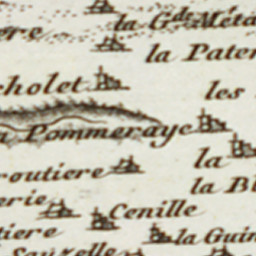 ere
la G.de Méta
la Pater
cholet
les
Pommeraye
la
routiere
la Bl
erie
Cenille
tiere
la Guin
Sauzelle